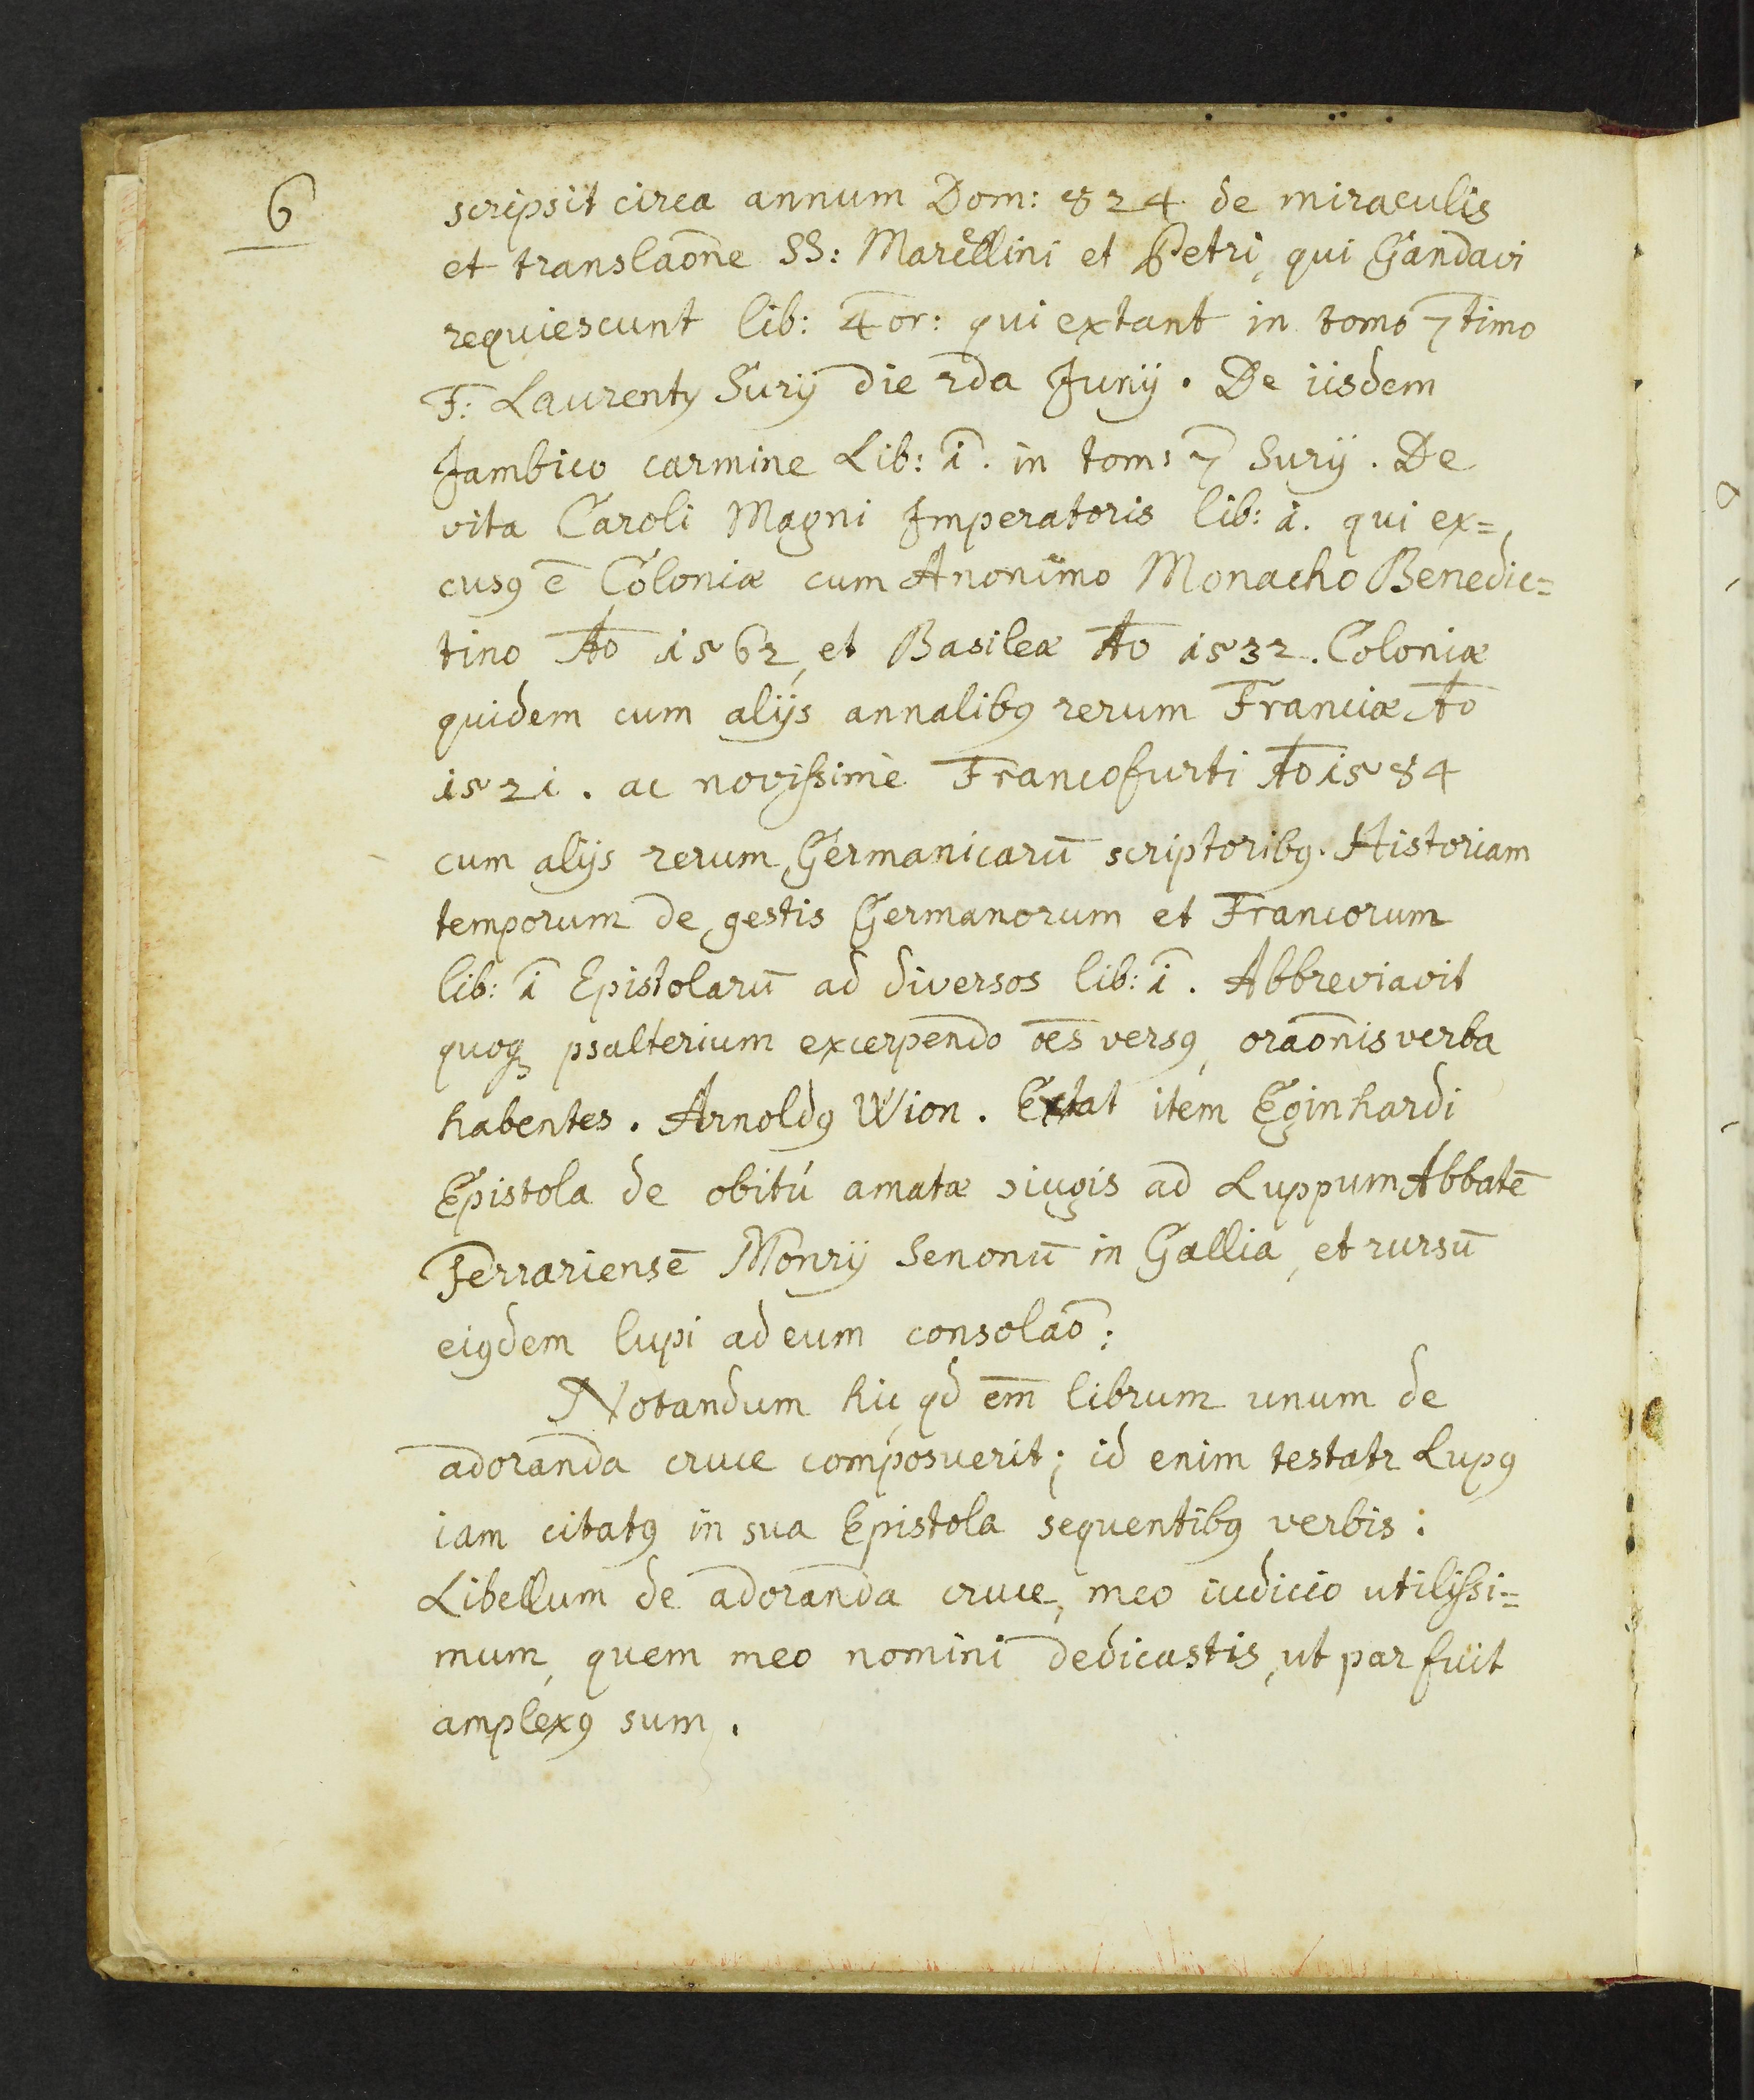 6
scripsit circa annum Dom: 824. de miraculis
et translaōne SS: Marcellini et Petri, qui Gandavi
requiescunt lib: 4or: qui extant in tomo 7timo
F: Laurentÿ Surÿ die 2da Junÿ. De iisdem
Jambico carmine Lib: i. in tom: 7 Surÿ. De
vita Caroli Magni Imperatoris lib: i. qui ex=
cusꝰ ē Coloniæ cum Anonimo Monacho Benedic=
tino Ao 1562, et Basileæ Ao 1532. Coloniæ
quidem cum alÿs annalibꝰ rerum Franciæ Ao
1521. ac novissimè Francofurti Ao 1584
cum alÿs rerum Germanicarū scriptoribꝰ. Historiam
temporum de gestis Germanorum et Francorum
lib: i Epistolarū ad diversos lib: i. Abbreviavit
quoqꝫ psalterium excerpendo ōes versꝰ, oraōnis verba
habentes. Arnoldꝰ Wion. Extat item Eginhardi
Epistola de obitú amatæ ↄiugis ad Luppum Abbatē
Ferrariensē Monrÿ Senonū in Gallia, et rursū
eiꝰdem lupi ad eum consolaō:
Notandum hic, qd em̄ librum unum de
adoranda cruce composuerit; id enim testatr Lupꝰ
iam citatꝰ in sua Epistola sequentibꝰ verbis:
Libellum de adoranda cruce, meo iudicio utilissi=
mum, quem meo nomini dedicastis, ut par fuit
amplexꝰ sum.